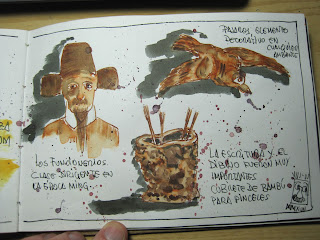 PÁJAROS, ELEMENTO
DECORATIVO EN
CUALQUIER
AMBIENTE
LOS FUNCIONARIOS
CLASE DIRIGENTE EN
LA ÉPOCA MING...
LA ESCRITURA Y EL
DIBUJO FUERON MUY
IMPORTANTES
CUBILETE DE BAMBÚ
PARA PINCELES